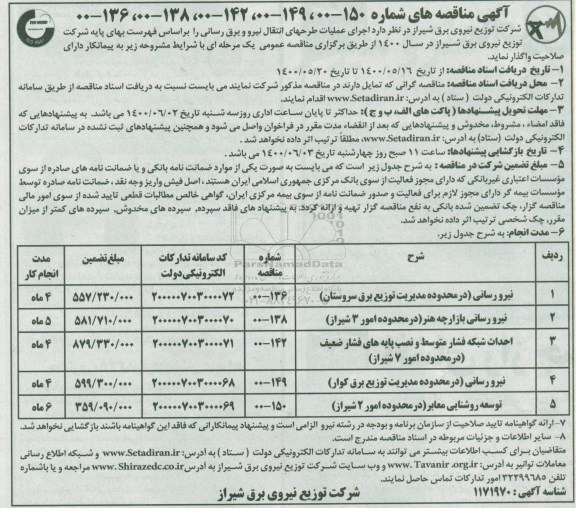 آگهی مناقصه های شماره ۱۵۰-۰۰، ۱۴۹-۰۰، ۱۴۲-۰۰، ۱۳۸-۰۰، ۱۳۶-۰۰
شرکت توزیع نیروی برق شیراز در نظر دارد اجرای عملیات طرحهای انتقال نیرو و برق رسانی را براساس فهرست بهای پایه شرکت
توزیع نیروی برق شیراز در سال ۱۴۰۰ از طریق برگزاری مناقصه عمومی یک مرحله ای با شرایط مشروحه زیر به پیمانکار دارای
صلاحیت واگذار نماید.
۱- تاریخ دریافت اسناد مناقصه: از تاریخ ۱۴۰۰/۰۵/۱۶ تا تاریخ ۱۴۰۰/۰۵/۲۰
۲- محل دریافت اسناد مناقصه: مناقصه گرانی که تمایل دارند در مناقصه مذکور شرکت نمایند می بایست نسبت به دریافت اسناد مناقصه از طریق سامانه
تدارکات الکترونیکی دولت (ستاد) به آدرس: www.Setadiran.ir اقدام نمایند.
۳- مهلت تحویل پیشنهادها (پاکت های الف، ب و ج): حداکثر تا پایان ساعت اداری روز سه شنبه تاریخ ۱۴۰۰/۰۶/۰۲ می باشد. به پیشنهادهایی که
فاقد امضاء، مشروط، مخدوش و پیشنهادهایی که بعد از انقضاء مدت مقرر در فراخوان واصل می شود و همچنین پیشنهادهای ثبت نشده در سامانه تدارکات
الکترونیکی دولت (ستاد) به آدرس: www.Setadiran.ir، مطلقاً ترتیب اثر داده نخواهد شد.
۴- تاریخ بازگشایی پیشنهادها: ساعت ۱۱ صبح روز چهارشنبه تاریخ ۱۴۰۰/۰۶/۰۳ می باشد.
۵- مبلغ تضمین شرکت در مناقصه: به شرح جدول زیر است که می بایست به صورت یکی از موارد ضمانت نامه بانکی و یا ضمانت نامه های صادره از سوی
مؤسسات اعتباری غیربانکی که دارای مجوز فعالیت از سوی بانک مرکزی جمهوری اسلامی ایران هستند، اصل فیش واریز وجه نقد، ضمانت نامه صادره توسط
مؤسسات بیمه گر دارای مجوز لازم برای فعالیت و صدور ضمانت نامه از سوی بیمه مرکزی ایران، گواهی خالص مطالبات قطعی تایید شده از سوی امور مالی
مناقصه گزار، چک تضمین شده بانکی به نفع مناقصه گزار تهیه و ارائه گردد. به پیشنهاد های فاقد سپرده، سپرده های مخدوش، سپرده های کمتر از میزان
مقرر، چک شخصی ترتیب اثر داده نخواهد شد.
۶- مدت انجام: به شرح جدول زیر.
ردیف شرح شماره مناقصه کد سامانه تدارکات الکترونیکی دولت مبلغ تضمین مدت انجام کار
۱ نیرو رسانی (در محدوده مدیریت توزیع برق سروستان) ۱۳۶-۰۰ ۲۰۰۰۰۰۷۰۰۳۰۰۰۰۷۲ ۵۵۷/۲۳۰/۰۰۰ ۴ ماه
۲ نیرو رسانی بازارچه هنر (در محدوده امور ۳ شیراز) ۱۳۸-۰۰ ۲۰۰۰۰۰۷۰۰۳۰۰۰۰۷۰ ۵۸۱/۷۱۰/۰۰۰ ۵ ماه
۳ احداث شبکه فشار متوسط و نصب پایه های فشار ضعیف (در محدوده امور ۷ شیراز) ۱۴۲-۰۰ ۲۰۰۰۰۰۷۰۰۳۰۰۰۰۷۱ ۸۷۹/۳۳۰/۰۰۰ ۴ ماه
۴ نیرو رسانی (در محدوده مدیریت توزیع برق کوار) ۱۴۹-۰۰ ۲۰۰۰۰۰۷۰۰۳۰۰۰۰۶۸ ۵۹۹/۳۰۰/۰۰۰ ۴ ماه
۵ توسعه روشنایی معابر (در محدوده امور ۲ شیراز) ۱۵۰-۰۰ ۲۰۰۰۰۰۷۰۰۳۰۰۰۰۶۹ ۳۵۹/۰۹۰/۰۰۰ ۶ ماه
۷- ارائه گواهینامه تایید صلاحیت از سازمان برنامه و بودجه در رشته نیرو الزامی است و پیشنهاد پیمانکارانی که فاقد این گواهینامه باشند بازگشایی نخواهد شد.
۸- سایر اطلاعات و جزئیات مربوطه در اسناد مناقصه مندرج است.
متقاضیان برای کسب اطلاعات بیشتر می توانند به سامانه تدارکات الکترونیکی دولت (ستاد) به آدرس: www.Setadiran.ir و شبکه اطلاع رسانی
معاملات توانیر به آدرس: www.Tavanir.org.ir و وب سایت شرکت توزیع نیروی برق شیراز به آدرس www.Shirazedc.co.ir مراجعه و یا باشماره
تلفن ۳۲۲۹۹۶۸۵ امور تدارکات تماس حاصل نمایند.
شناسه آگهی: ۱۱۷۱۹۷۰ شرکت توزیع نیروی برق شیراز